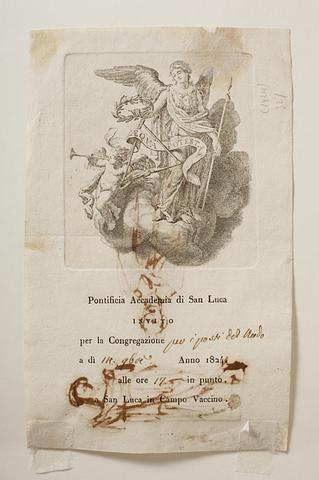 Pontificia Accademia di San Luca
INVITO
per la Congregazione per i posti del Nudo
a dì 14. 9bre Anno 1824.
alle ore 17 in punto.
a San Luca in Campo Vaccino.